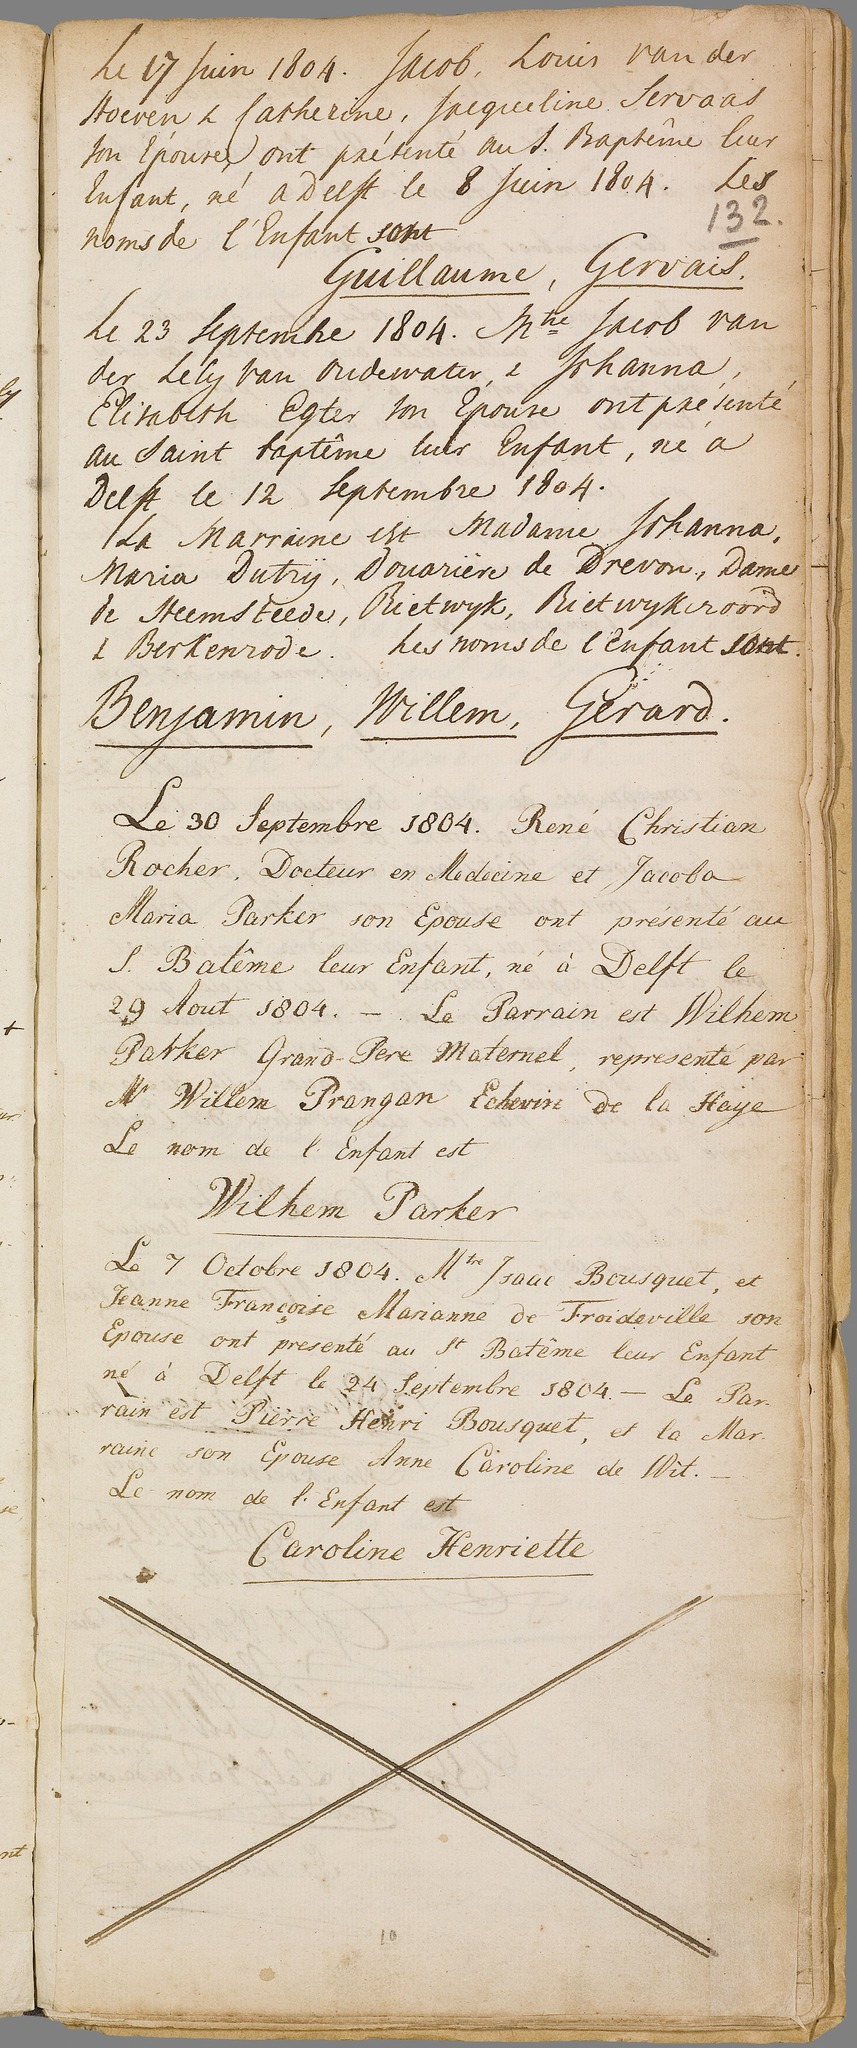 Le 17 Juin 1804. Jacob, Louis van der
Hoeven & Catherine, Jacqueline Servaas
son Epouse, ont présenté au S. Baptême leur
Enfant, né a Delft le 8 Juin 1804. Les
132.
noms de l'Enfant sont
Guillaume, Gervais.
Le 23 Septembre 1804. Mtre Jacob van
der Lely van Oudewater, & Johanna,
Elisabeth Egter son Epouse ont présenté
au Saint baptême leur Enfant, né a
Delft le 12 Septembre 1804.
La Marraine est Madame Johanna,
Maria Dutrÿ, Douarière de Drevon, Dame
de Heemsteede, Rietwyk, Rietwykeroord
& Berkenrode. Les noms de l'Enfant sont.
Benjamin, Willem, Gerard.
Le 30 Septembre 1804. René Christian
Rocher, Docteur en Medecine et Jacoba
Maria Parker son Epouse ont présenté au
S. Batême leur Enfant, né à Delft le
29 Aout 1804. — Le Parrain est Wilhem
Parker Grand-Pere Maternel, representé par
Mr Willem Prangan Echevin de la Haye
Le nom de l'Enfant est
Wilhem Parker
Le 7 Octobre 1804. Mtre Isaac Bousquet, et
Jeanne Françoise Marianne de Froideville son
Epouse ont presenté au St Batême leur Enfant
né à Delft le 24 Septembre 1804 — Le Par-
rain est Pierre Henri Bousquet, et la Mar-
raine son Epouse Anne Caroline de Wit. —
Le nom de l'Enfant est
Caroline Henriette
10